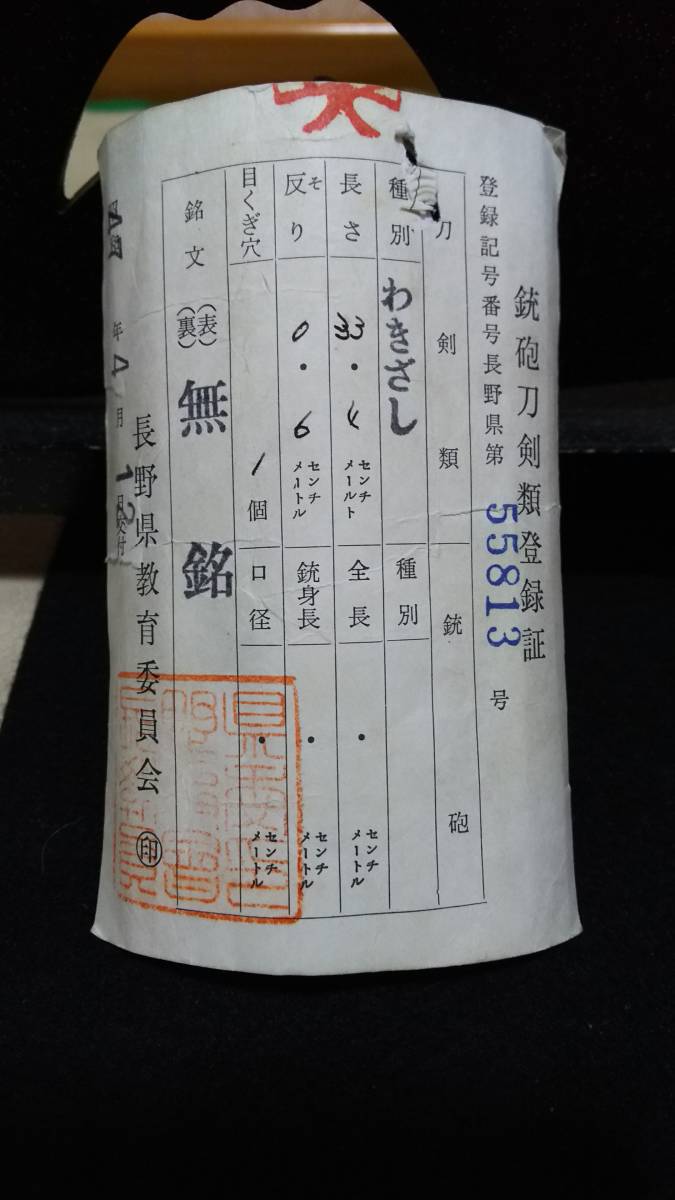 銃砲刀剣類登録証
登録記号番号長野県第 55813 号
刀剣類
銃砲
種別 わきざし
種別
長さ 33.4 センチメールト
全長 . センチメートル
反り そ 0.6 センチメートル
銃身長 . センチメートル
目くぎ穴 1個
口径 . センチメートル
銘文 (表) (裏) 無銘
長野県教育委員会 印
年4月13日交付